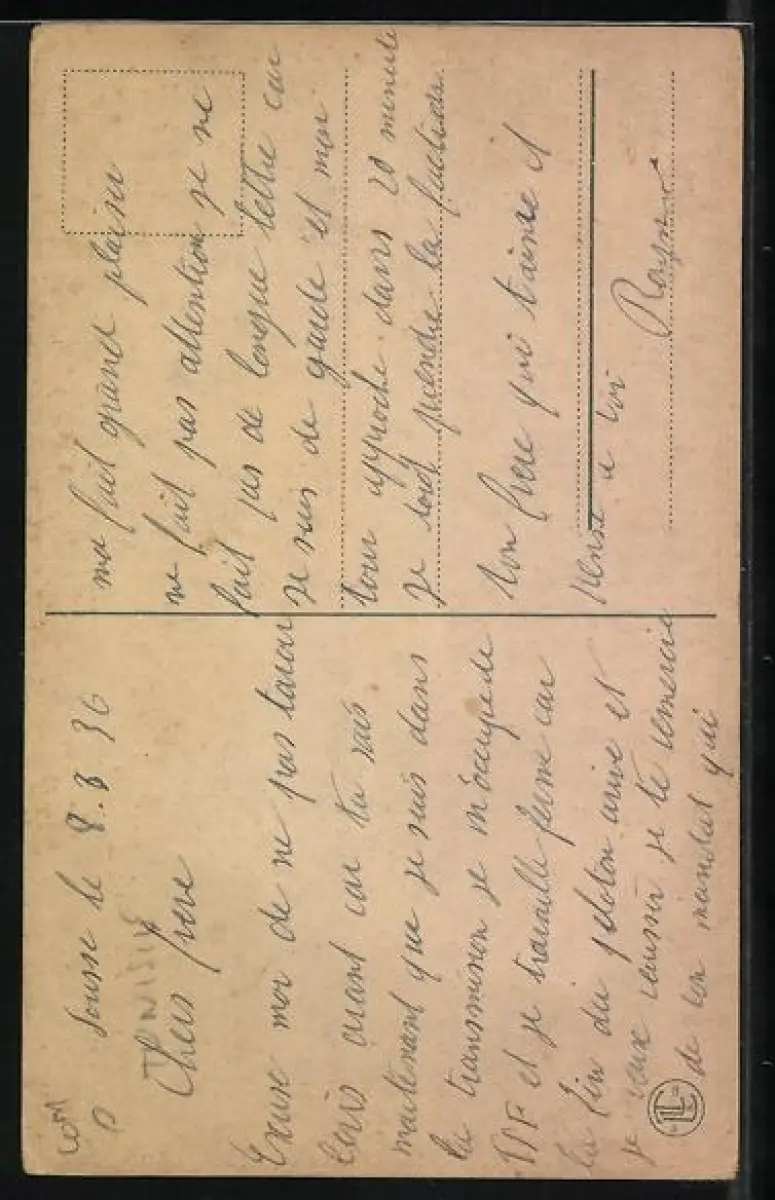 Sousse le 8.3 36
TUNISIE
Chers frere
Excuse moi de ne pas tavoir
ecris avant car tu sais
maintenant que je suis dans
la transmision je m'occupe de
et je travaille ferme car
la fin du peloton arrive et
je veux reussir je te remercie
de ton mandat qui
ma fait grand plaisir
ne fait pas attention je ne
fait pas de longue lettre car
je suis de garde et mon
tour approche dans 20 minute
je doit prendre la faction
ton frere qui t'aime et
pense a toi